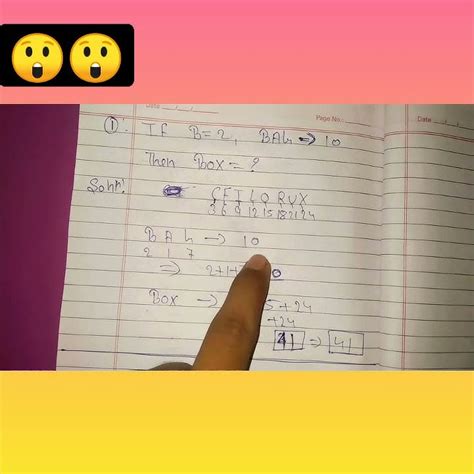 Date
Page No.
① If B=2, BAG ⇒ 10
Then BOX = ?
Soln!
C F I L O R U X
3 6 9 12 15 18 21 24
B A G → 10
2 1 7
⇒ 2+1+ 0
BOX → 5+24
+24
41 ⇒ 41